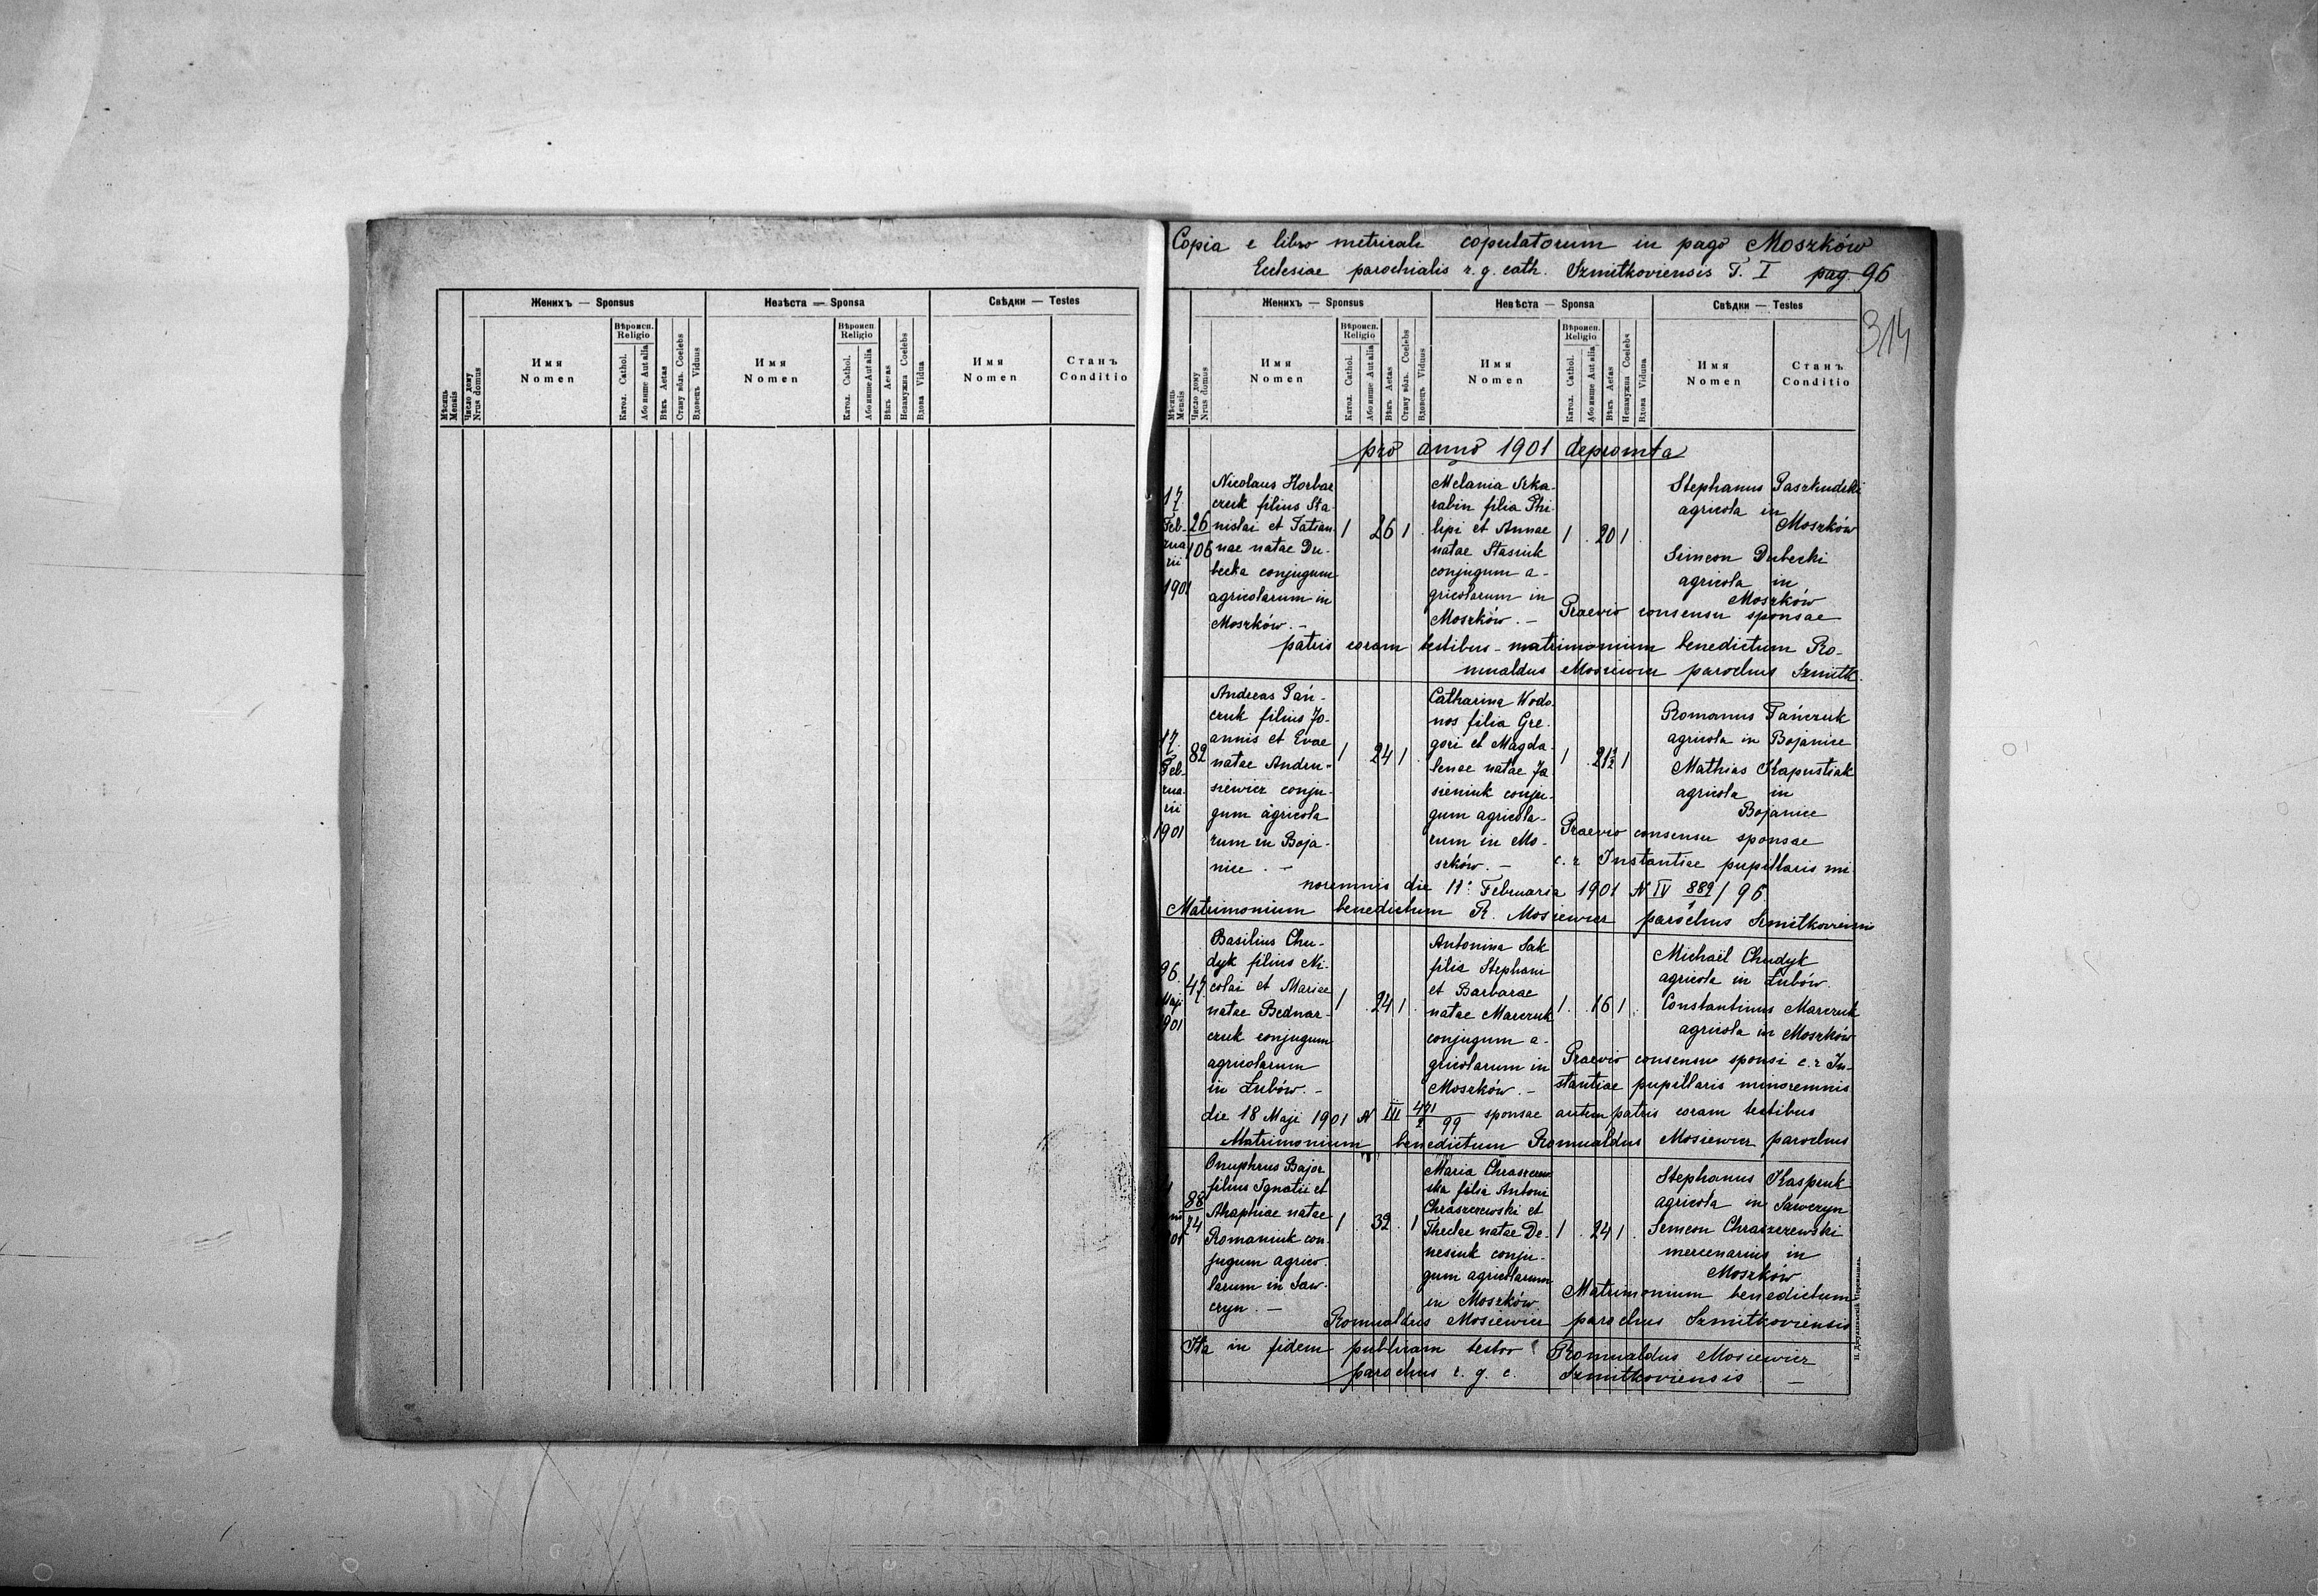 Женихъ — Sponsus
Невѣста — Sponsa
Свѣдки — Testes
Мѣсяць Mensis
Число дому Nrus domus
Имя Nomen
Вѣроисп. Religio
Катол. Cathol.
Або инше Aut alia
Вѣкъ Aetas
Стану вôль. Coelebs
Вдовець Viduus
Имя Nomen
Вѣроисп. Religio
Катол. Cathol.
Або инше Aut alia
Вѣкъ Aetas
Незамужна Coelebs
Вдова Vidua
Имя Nomen
Станъ Conditio
Copia e libro metricali copulatorum in pago Moszków
Ecclesiae parochialis r. g. cath. Szmitkoviensis T. I pag. 96
314
Женихъ — Sponsus
Невѣста — Sponsa
Свѣдки — Testes
Мѣсяць Mensis
Число дому Nrus domus
Имя Nomen
Вѣроисп. Religio
Катол. Cathol.
Або инше Aut alia
Вѣкъ Aetas
Стану вôль. Coelebs
Вдовець Viduus
Имя Nomen
Вѣроисп. Religio
Катол. Cathol.
Або инше Aut alia
Вѣкъ Aetas
Незамужна Coelebs
Вдова Vidua
Имя Nomen
Станъ Conditio
pro anno 1901 depromta
17
Feb-
rua
rii
1901
26
106
Nicolaus Horba
czuk filius Sta-
nislai et Tatian-
nae natae Du-
becka conjugum
agricolarum in
Moszków. -
1 26 1
Melania Szka-
rabin filia Phi-
lipi et Annae
natae Stasiuk
conjugum a-
gricolarum in
Moszków. -
1 20 1
Stephanus Paszkudzki
agricola in
Moszków
Simeon Dubecki
agricola in
Moszków
Praevio consensu sponsae
patris coram testibus - matrimonium benedictum Ro-
mualdus Mosiewicz parochus Szmitk.
17.
Feb-
rua-
rii
1901
82
Andreas Pań-
czuk filius Jo-
annis et Evae
natae Andru-
siewicz conju-
gum agricola
rum in Boja-
nice. -
1 24 1
Catharina Wodo-
nos filia Gre-
gori et Magda-
lenae natae Ja
sieniuk conju-
gum agricola-
rum in Mo-
szków. -
1 21½ 1
Romanus Pańczuk
agricola in Bojanice
Mathias Kapustiak
agricola in
Bojanice
Praevio consensu sponsae
c. r. Instantiae pupillaris mi
noremnis die 11. Februaria 1901 N IV 889/ 96.
Matrimonium benedictum R. Mosiewicz parochus Szmitkoviensis
26.
Maji
1901
47
Basilius Chu-
dyk filius Ni-
colai et Mariae
natae Bednar-
czuk conjugum
agricolarum
in Łubów. -
1 24 1
Antonina Sak
filia Stephani
et Barbarae
natae Marczuk
conjugum a-
gricolarum in
Moszków. -
1 16 1
Michaël Chudyk
agricola in Łubów.
Constantinus Marczuk
agricola in Moszków
Praevio consensu sponsi c. r. In-
stantiae pupillaris minoremnis
die 18 Maji 1901 N III 471/2 99 sponsae autem patris coram testibus
Matrimonium benedictum Romualdus Mosiewicz parochus
88
74
Onuphrus Bajor
filius Ignatii et
Ahaphiae natae
Romaniuk con-
jugum agrico-
larum in Saw-
czyn. -
1 32 1
Maria Chraszczew
ska filia Antoni
Chraszczewski et
Theclae natae De-
nesiuk conju-
gum agricolarum
in Moszków.
1 24 1
Stephanus Kaspruk
agricola in Sawczyn
Semeon Chraszczewski
mercenarius in
Moszków
Matrimonium benedictum
Romualdus Mosiewicz parochus Szmitkoviensis
Ita in fidem publicam testor Romualdus Mosiewicz
parochus r. g. c. Szmitkoviensis -